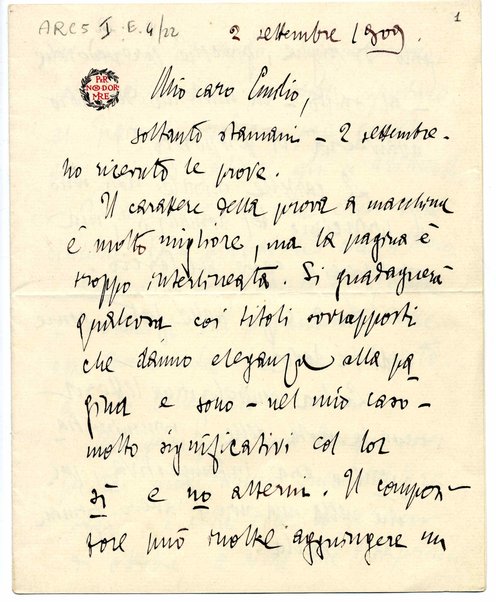 1
ARC5 I.E.4/22
2 settembre 1909.
PER
NON DOR
MIRE
Mio caro Emilio,
soltanto stamani – 2 settembre –
ho ricevuto le prove.
Il carattere della prova a macchina
è molto migliore, ma la pagina è
troppo interlineata. Si guadagnerà
qualcosa coi titoli sovrapposti
che danno eleganza alla pa
gina e sono – nel mio caso –
molto significativi col lor
sì e no alterni. Il composi-
tore può inoltre aggiungere un